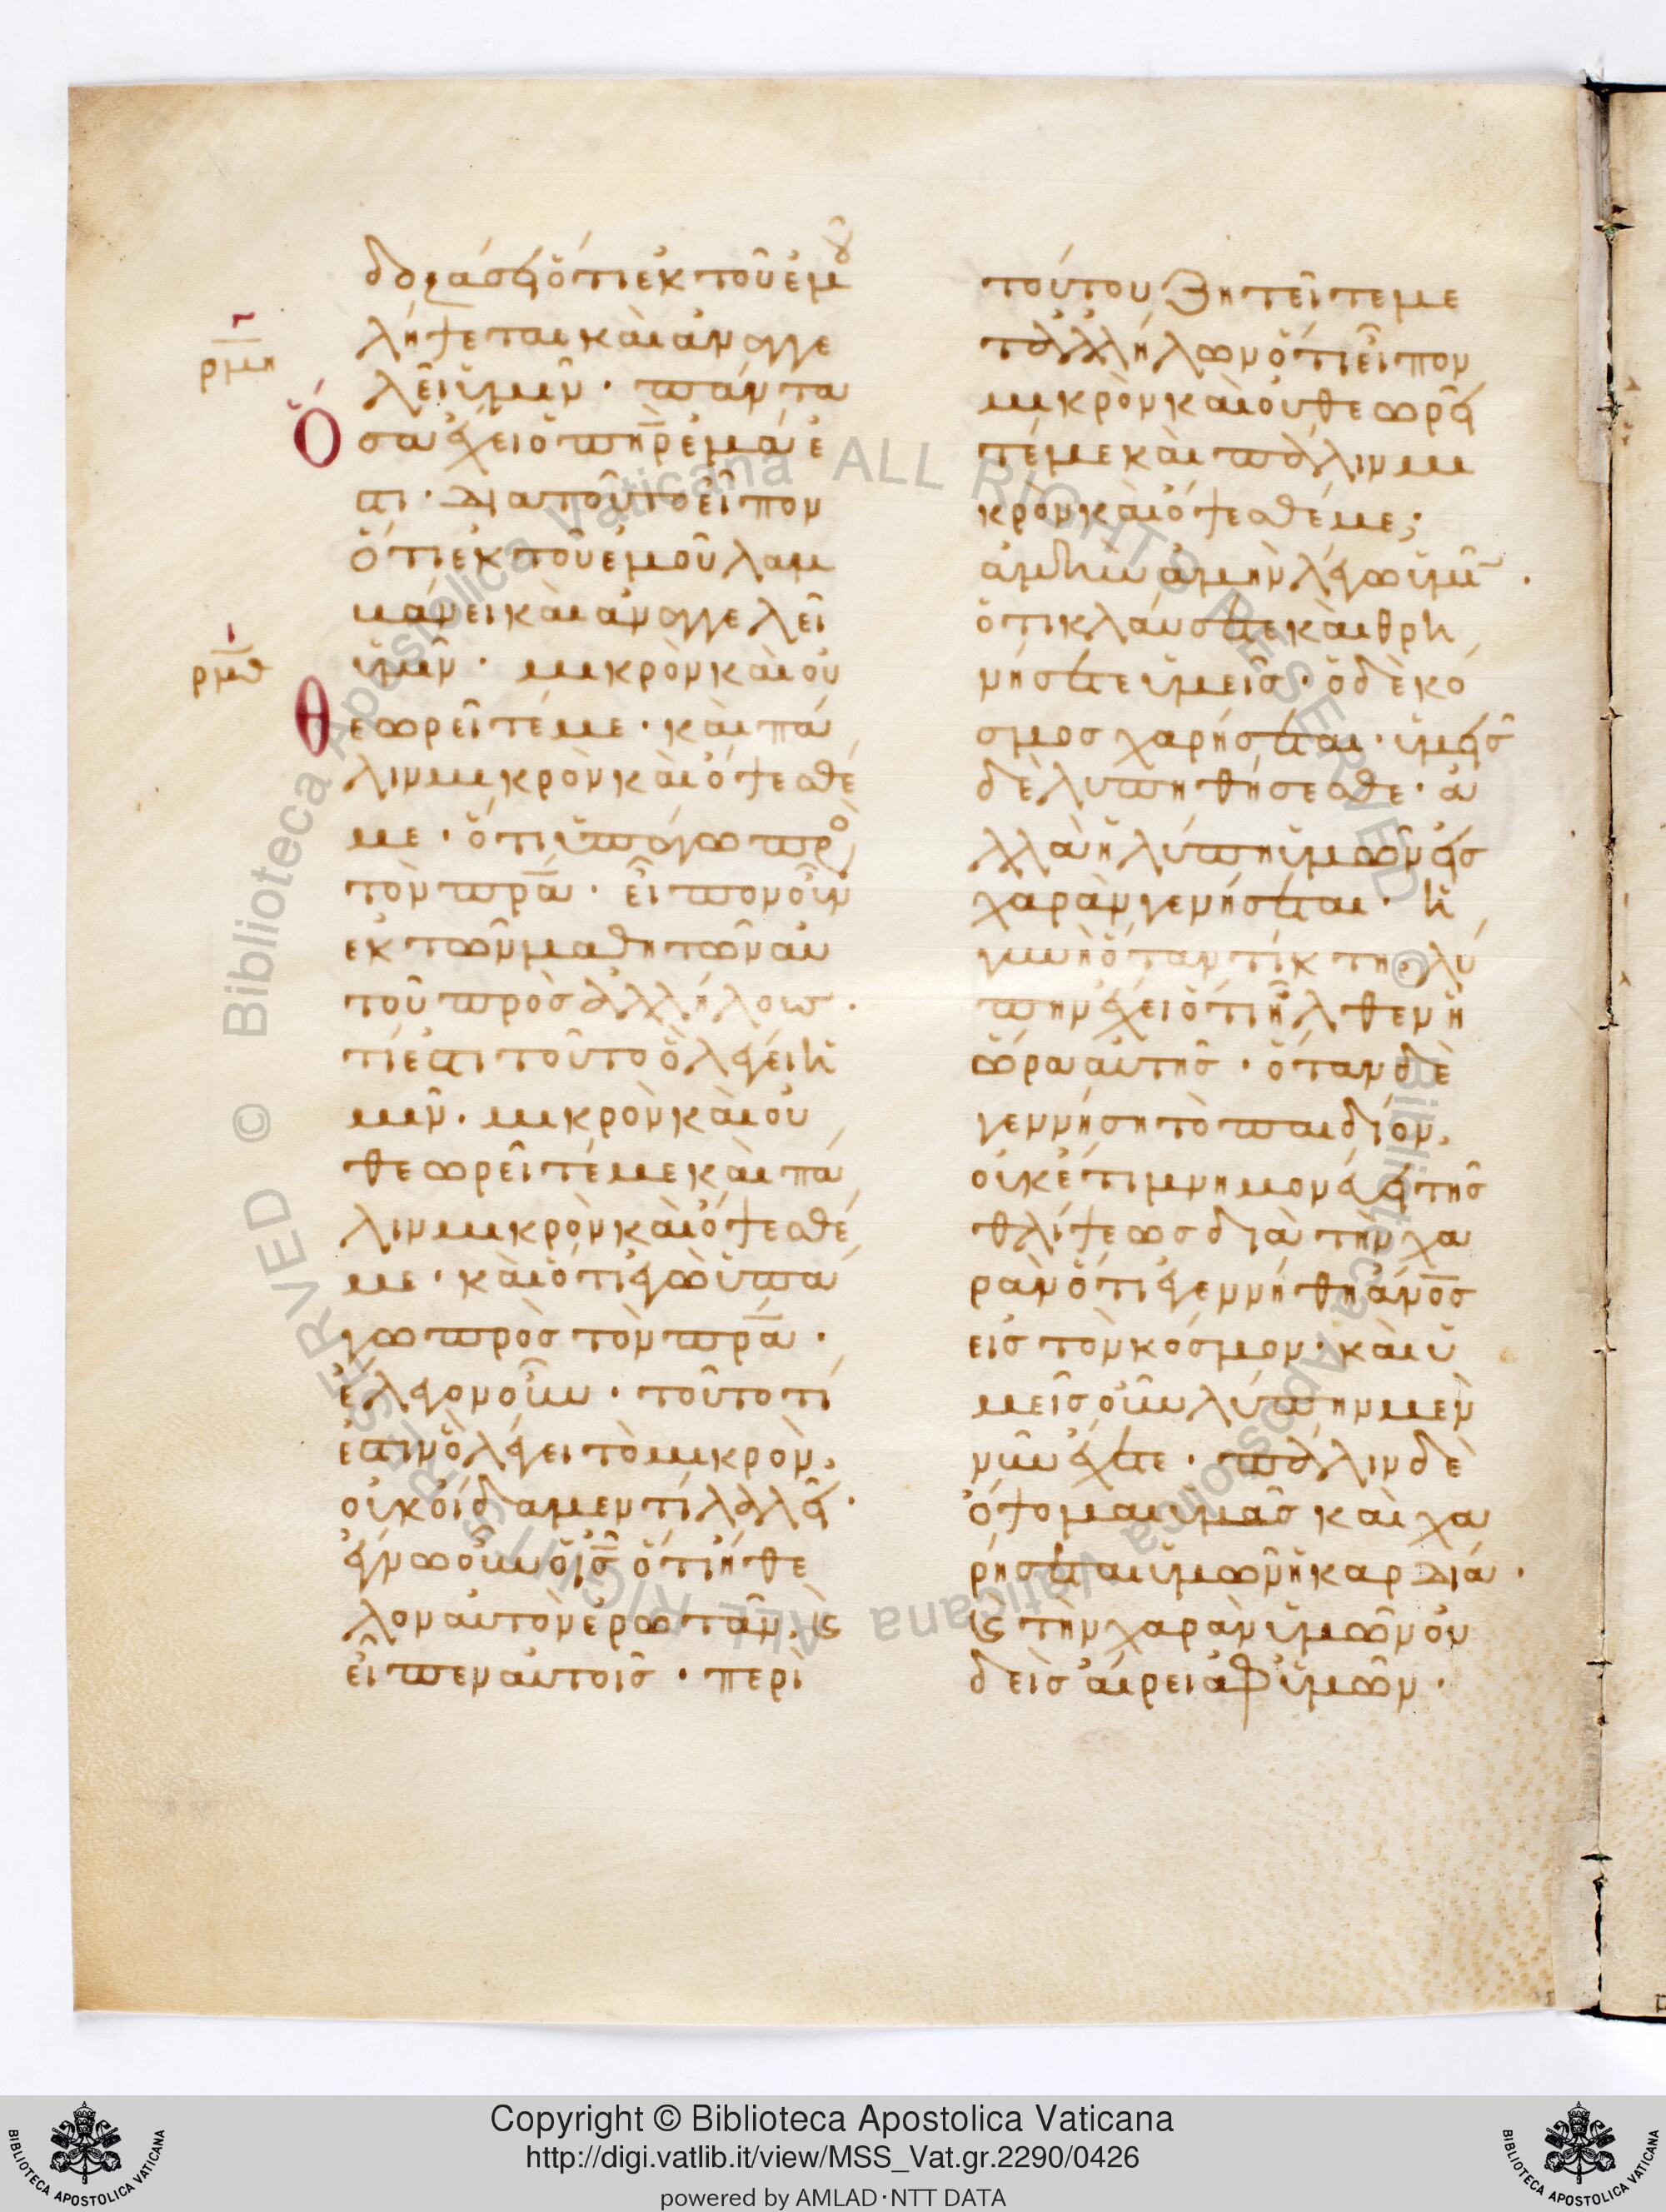 δοξάσει ὅτι ἐκ τοῦ ἐμοῦ
λήψεται καὶ ἀναγγε
λεῖ ὑμῖν · πάντα
ρμη
ὅσα ἔχει ὁ πηρ ἐμά ἐ
στι · διατοῦτο εἶπον
ὅτι ἐκ τοῦ ἐμοῦ λαμ
βάνει καὶ ἀναγγελεῖ
ὑμῖν · μικρὸν καὶ οὐ
ρμθ
θεωρεῖτέ με · καὶ πά
λιν μικρὸν καὶ ὄψεσθέ
με · ὅτι ὑπάγω πρὸς
τὸν πρα · εἶπον οὖν
ἐκ τῶν μαθητῶν αὐ
τοῦ πρὸς ἀλλήλους ·
τί ἐστι τοῦτο ὃ λέγει ἡ
μῖν · μικρὸν καὶ οὐ
θεωρεῖτέ με καὶ πά
λιν μικρὸν καὶ ὄψεσθέ
με · καὶ ὅτι ἐγὼ ὑπά
γω πρὸς τὸν πρα ·
ἔλεγον οὖν · τοῦτο τί
ἐστιν ὃ λέγει τὸ μικρὸν,
οὐκ οἴδαμεν τί λαλεῖ ·
ἔγνω οὖν ὁ ις ὅτι ἤθε
λον αὐτὸν ἐρωτᾶν, καὶ
εἶπεν αὐτοῖς · περὶ
τούτου ζητεῖτε με
τ ἀλλήλων ὅτι εἶπον
μικρὸν καὶ οὐ θεωρεῖ
τέ με καὶ πάλιν μι
κρὸν καὶ ὄψεσθέ με;
ἀμὴν ἀμὴν λέγω ὑμῖν ·
ὅτι κλαύσετε καὶ θρη
νήσετε ὑμεῖς · ὁ δὲ κό
σμος χαρήσεται · ὑμεῖς
δὲ λυπηθήσεσθε · ἀ
λλὰ ἡ λύπη ὑμῶν εἰς
χαρὰν γενήσεται · ἡ
γυνὴ ὅταν τίκτη, λύ
πην ἔχει ὅτι ἦλθεν ἡ
ὥρα αὐτῆς · ὅταν δὲ
γεννήση τὸ παιδίον,
οὐκέτι μνημονεύει τῆς
θλίψεως διὰ τὴν χα
ρὰν ὅτι ἐγεννήθη ἀνος
εἰς τὸν κόσμον · καὶ ὑ
μεῖς οὖν λύπην μὲν
νῦν ἔχετε · πάλιν δὲ
ὄψομαι ὑμᾶς καὶ χα
ρήσεται ὑμῶν ἡ καρδία ·
καὶ τὴν χαρὰν ὑμῶν οὐ
δεὶς αἴρει ἀφ ὑμῶν ·
Biblioteca Apostolica Vaticana ALL RIGHTS RESERVED ©
Biblioteca Apostolica Vaticana ALL RIGHTS RESERVED ©
BIBLIOTECA APOSTOLICA VATICANA
Copyright © Biblioteca Apostolica Vaticana
http://digi.vatlib.it/view/MSS_Vat.gr.2290/0426
powered by AMLAD·NTT DATA
BIBLIOTECA APOSTOLICA VATICANA